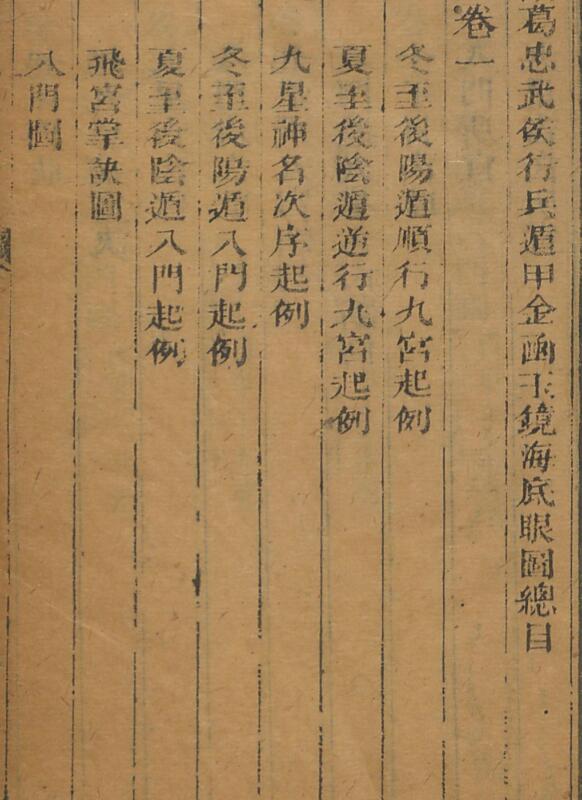 葛忠武侯行兵遁甲金函玉鏡海底眼圖總目
卷一
冬至後陽遁順行九宮起例
夏至後陰遁逆行九宮起例
九星神名次序起例
冬至後陽遁八門起例
夏至後陰遁八門起例
飛宮掌訣圖
八門圖